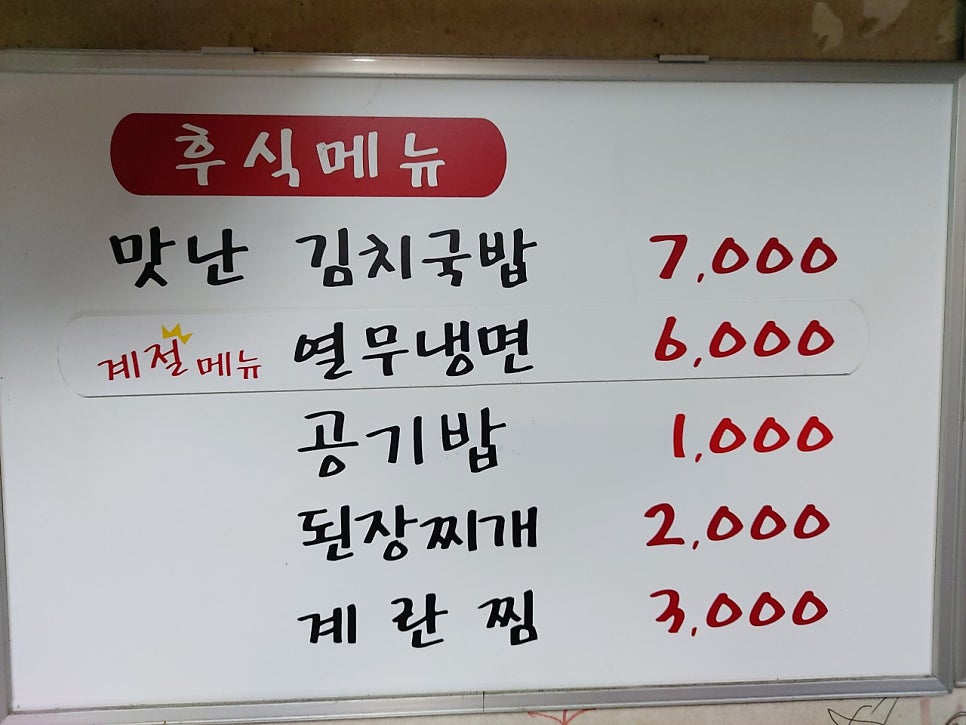 후식메뉴
맛난 김치국밥 7,000
계절메뉴 열무냉면 6,000
공기밥 1,000
된장찌개 2,000
계란찜 3,000